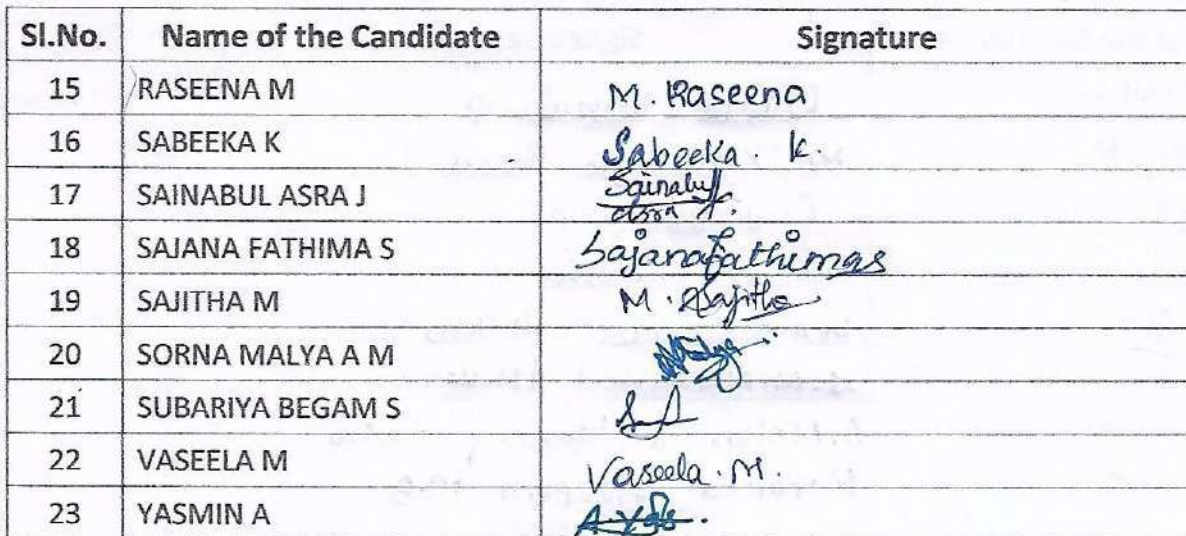 Sl.No. Name of the Candidate Signature
15 RASEENA M M. Raseena
16 SABEEKA K Sabeeka. k.
17 SAINABUL ASRA J Sainabul
asra J.
18 SAJANA FATHIMA S Sajanafathimas
19 SAJITHA M M. Sajitha
20 SORNA MALYA A M
21 SUBARIYA BEGAM S
22 VASEELA M Vaseela. M.
23 YASMIN A